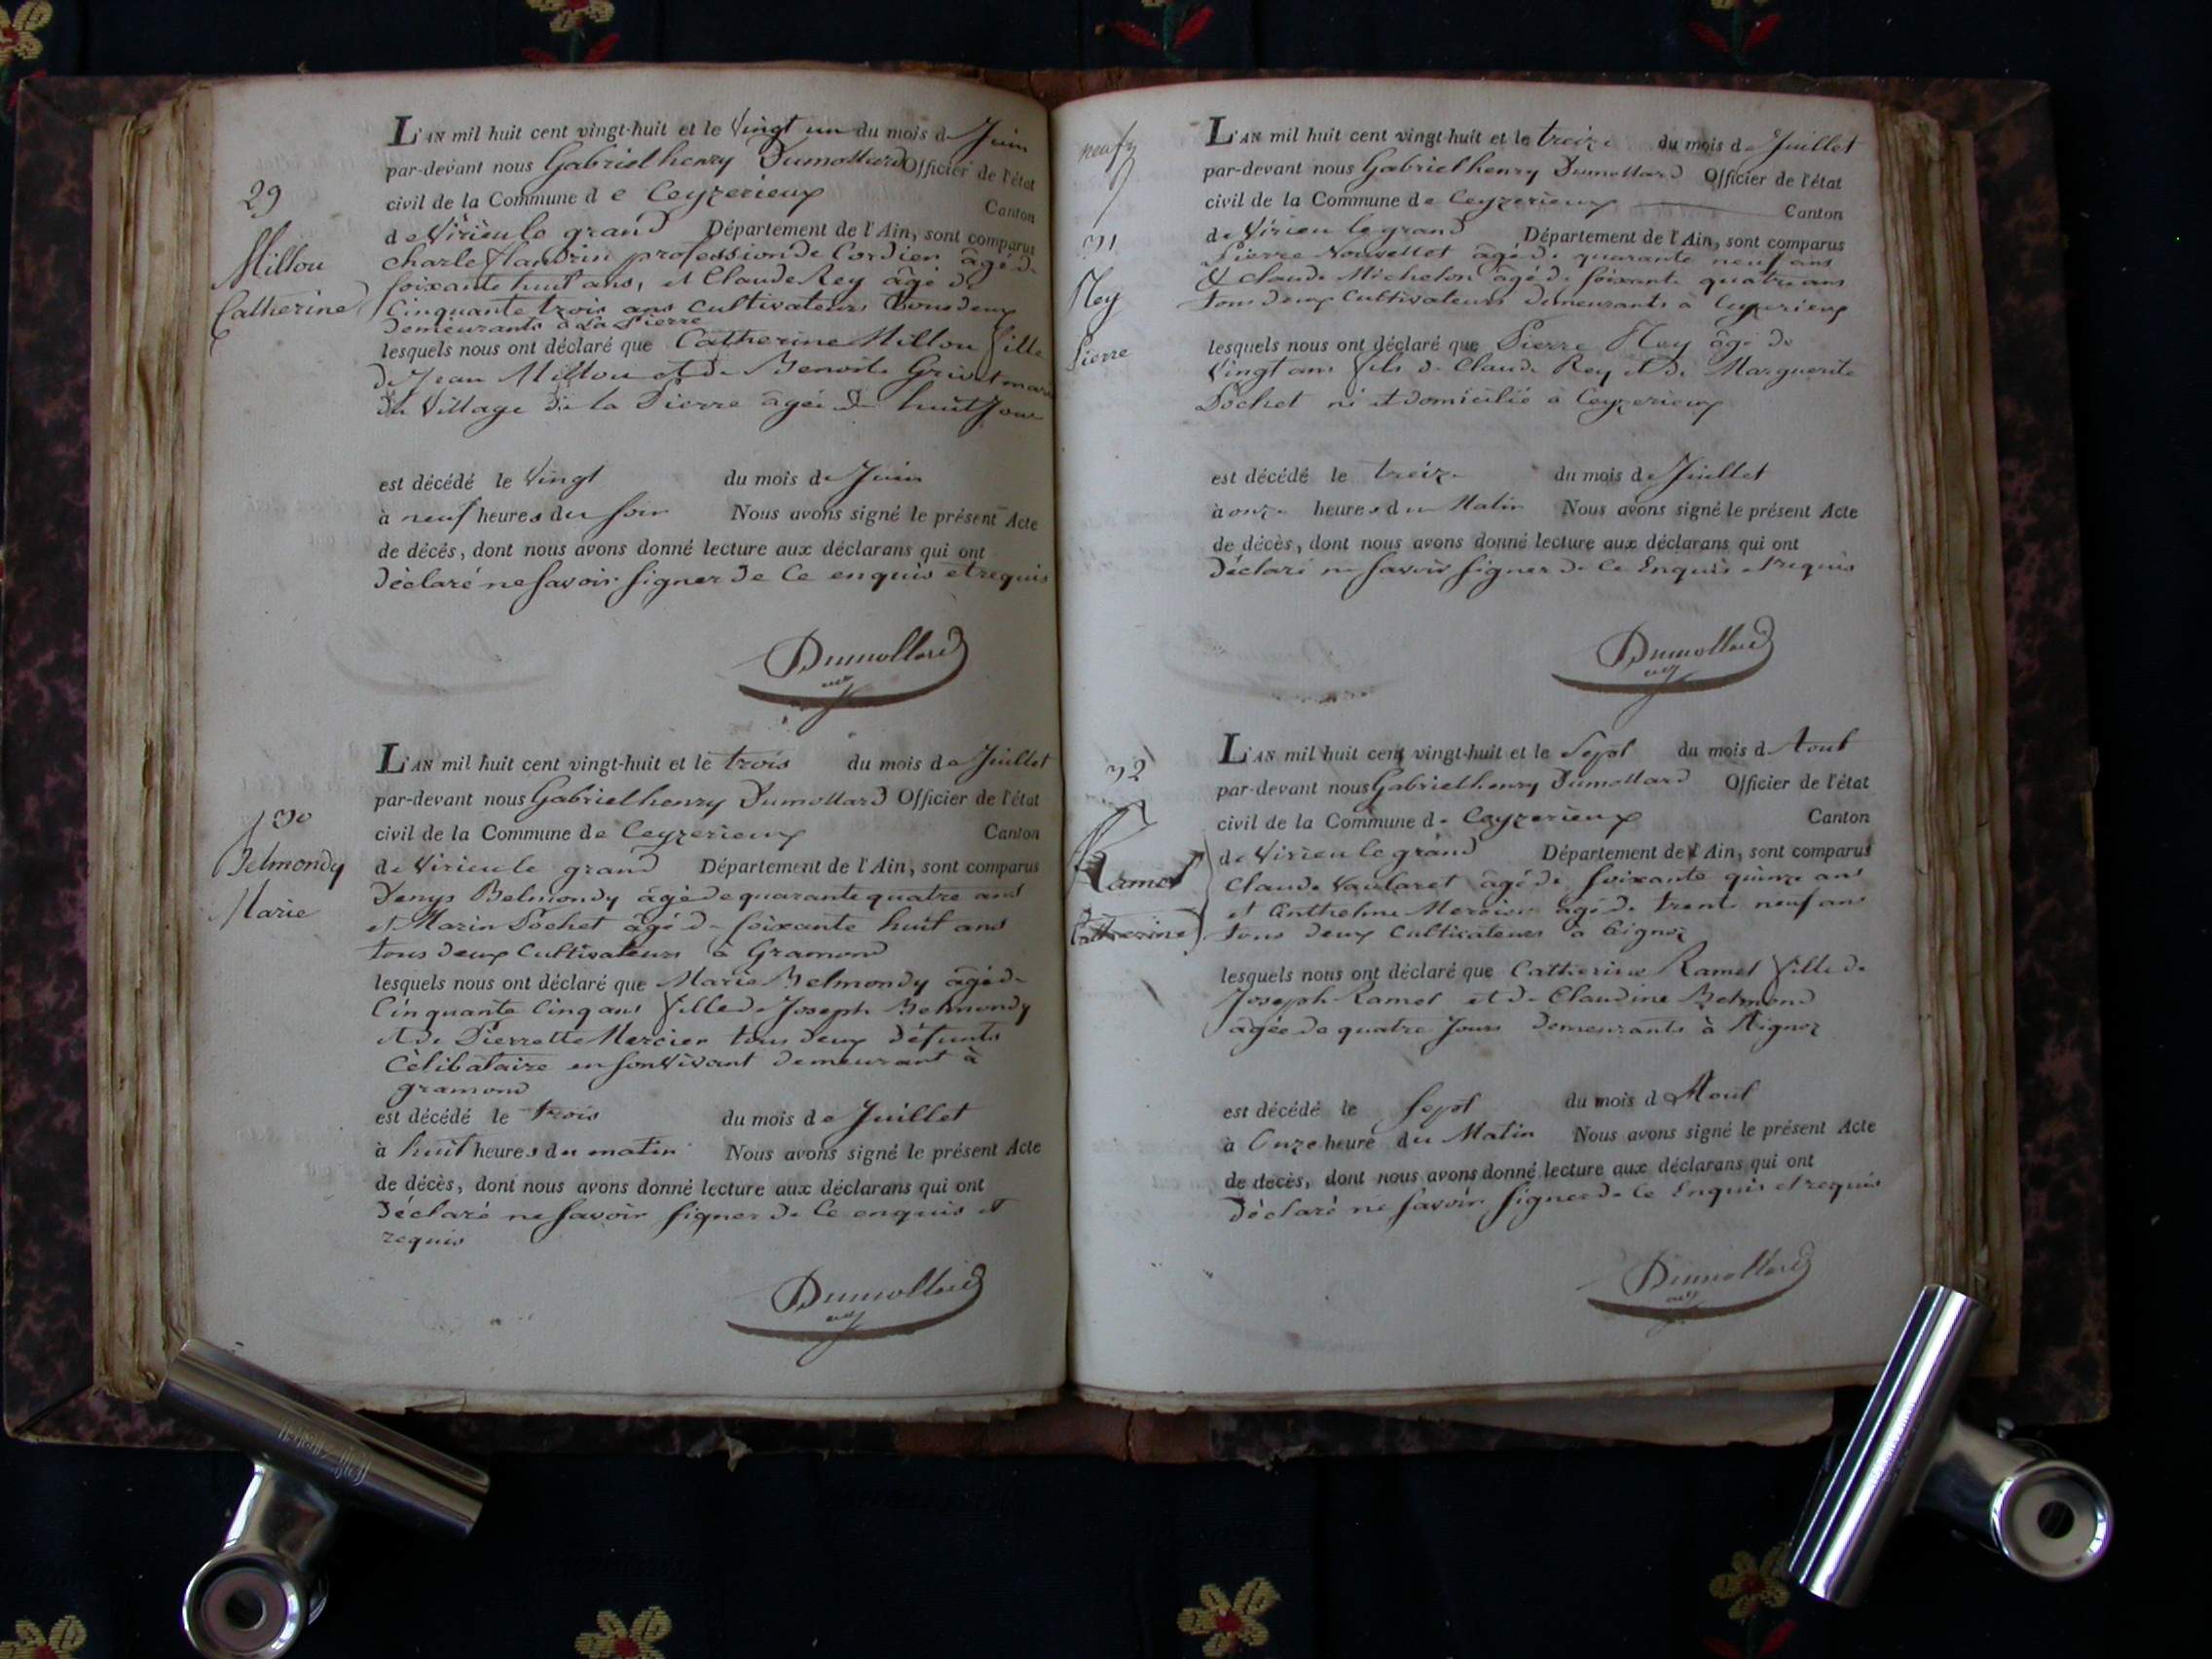 29
Millou
Catherine
L'AN mil huit cent vingt-huit et le Vingt un du mois de Juin
par-devant nous Gabriel henry Dumollard Officier de l'état
civil de la Commune d e Ceyzerieux Canton
de Virieu le grand Département de l'Ain, sont comparus
Charle Flandrin profession de Cordier âgé de
soixante huit ans, et Claude Rey âgé de
Cinquante trois ans cultivateurs tous deux
demeurants à La Pierre
lesquels nous ont déclaré que Catherine Millou fille
de Jean Millou et de Benoite Grivet mariés
du Village de la Pierre âgée de huit Jour
est décédé le Vingt du mois de Juin
à neuf heures du soir Nous avons signé le présent Acte
de décès, dont nous avons donné lecture aux déclarans qui ont
déclaré ne savoir signer de Ce enquis et requis
Dumollard
30
Belmondy
Marie
L'AN mil huit cent vingt-huit et le trois du mois de Juillet
par-devant nous Gabriel henry Dumollard Officier de l'état
civil de la Commune de Ceyzerieux Canton
de Virieu le grand Département de l'Ain, sont comparus
Denys Belmondy âgé de quarante quatre ans
et Marin Pochet âgé de soixante huit ans
tous deux Cultivateurs à Gramond
lesquels nous ont déclaré que Marie Belmondy âgé de
Cinquante Cinq ans fille de Joseph Belmondy
et de Pierrette Mercier tous deux défunts
Célibataire en son vivant demeurant à
gramond
est décédé le trois du mois de Juillet
à huit heures du matin Nous avons signé le présent Acte
de décès, dont nous avons donné lecture aux déclarans qui ont
déclaré ne savoir signer de Ce enquis et
requis
Dumollard
neuf
31
Rey
Pierre
L'AN mil huit cent vingt-huit et le treize du mois de Juillet
par-devant nous Gabriel henry Dumollard Officier de l'état
civil de la Commune de Ceyzerieux Canton
de Virieu le grand Département de l'Ain, sont comparus
Pierre Nouvellet âgé de quarante neuf ans
& Claude Michelon âgé de soixante quatre ans
tous deux Cultivateurs demeurants à Ceyzerieux
lesquels nous ont déclaré que Pierre Rey âgé de
Vingt ans fils de Claude Rey et de Marguerite
Pochet né et domicilié à Ceyzerieux
est décédé le treize du mois de Juillet
à onze heures du Matin Nous avons signé le présent Acte
de décès, dont nous avons donné lecture aux déclarans qui ont
déclaré ne savoir signer de Ce Enquis et requis
Dumollard
32
Ramel
Catherine
L'AN mil huit cent vingt-huit et le Sept du mois d Aout
par-devant nous Gabriel henry Dumollard Officier de l'état
civil de la Commune de Ceyzerieux Canton
de Virieu le grand Département de l'Ain, sont comparus
Claude Vaularet âgé de soixante quinze ans
et Anthelme Mercier âgé de trente neuf ans
tous deux Cultivateurs à Aignoz
lesquels nous ont déclaré que Catherine Ramel fille de
Joseph Ramel et de Claudine Belmond
agée de quatre Jours demeurants à Aignoz
est décédé le Sept du mois d Aout
à Onze heure du Matin Nous avons signé le présent Acte
de décès, dont nous avons donné lecture aux déclarans qui ont
déclaré ne savoir signer de Ce Enquis et requis
Dumollard